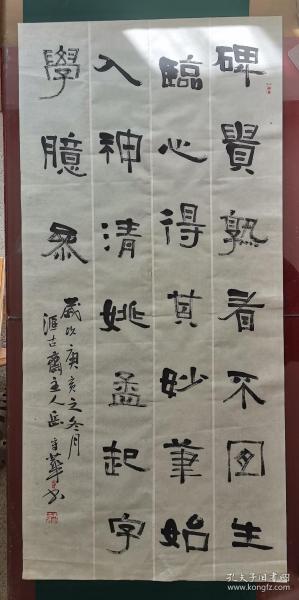 碑貴熟看不圖生
臨心得其妙筆始
入神清姚孟起字
學臆参
歲次庚亥之冬月
滙古齋主人岳華书
孔夫子旧书网